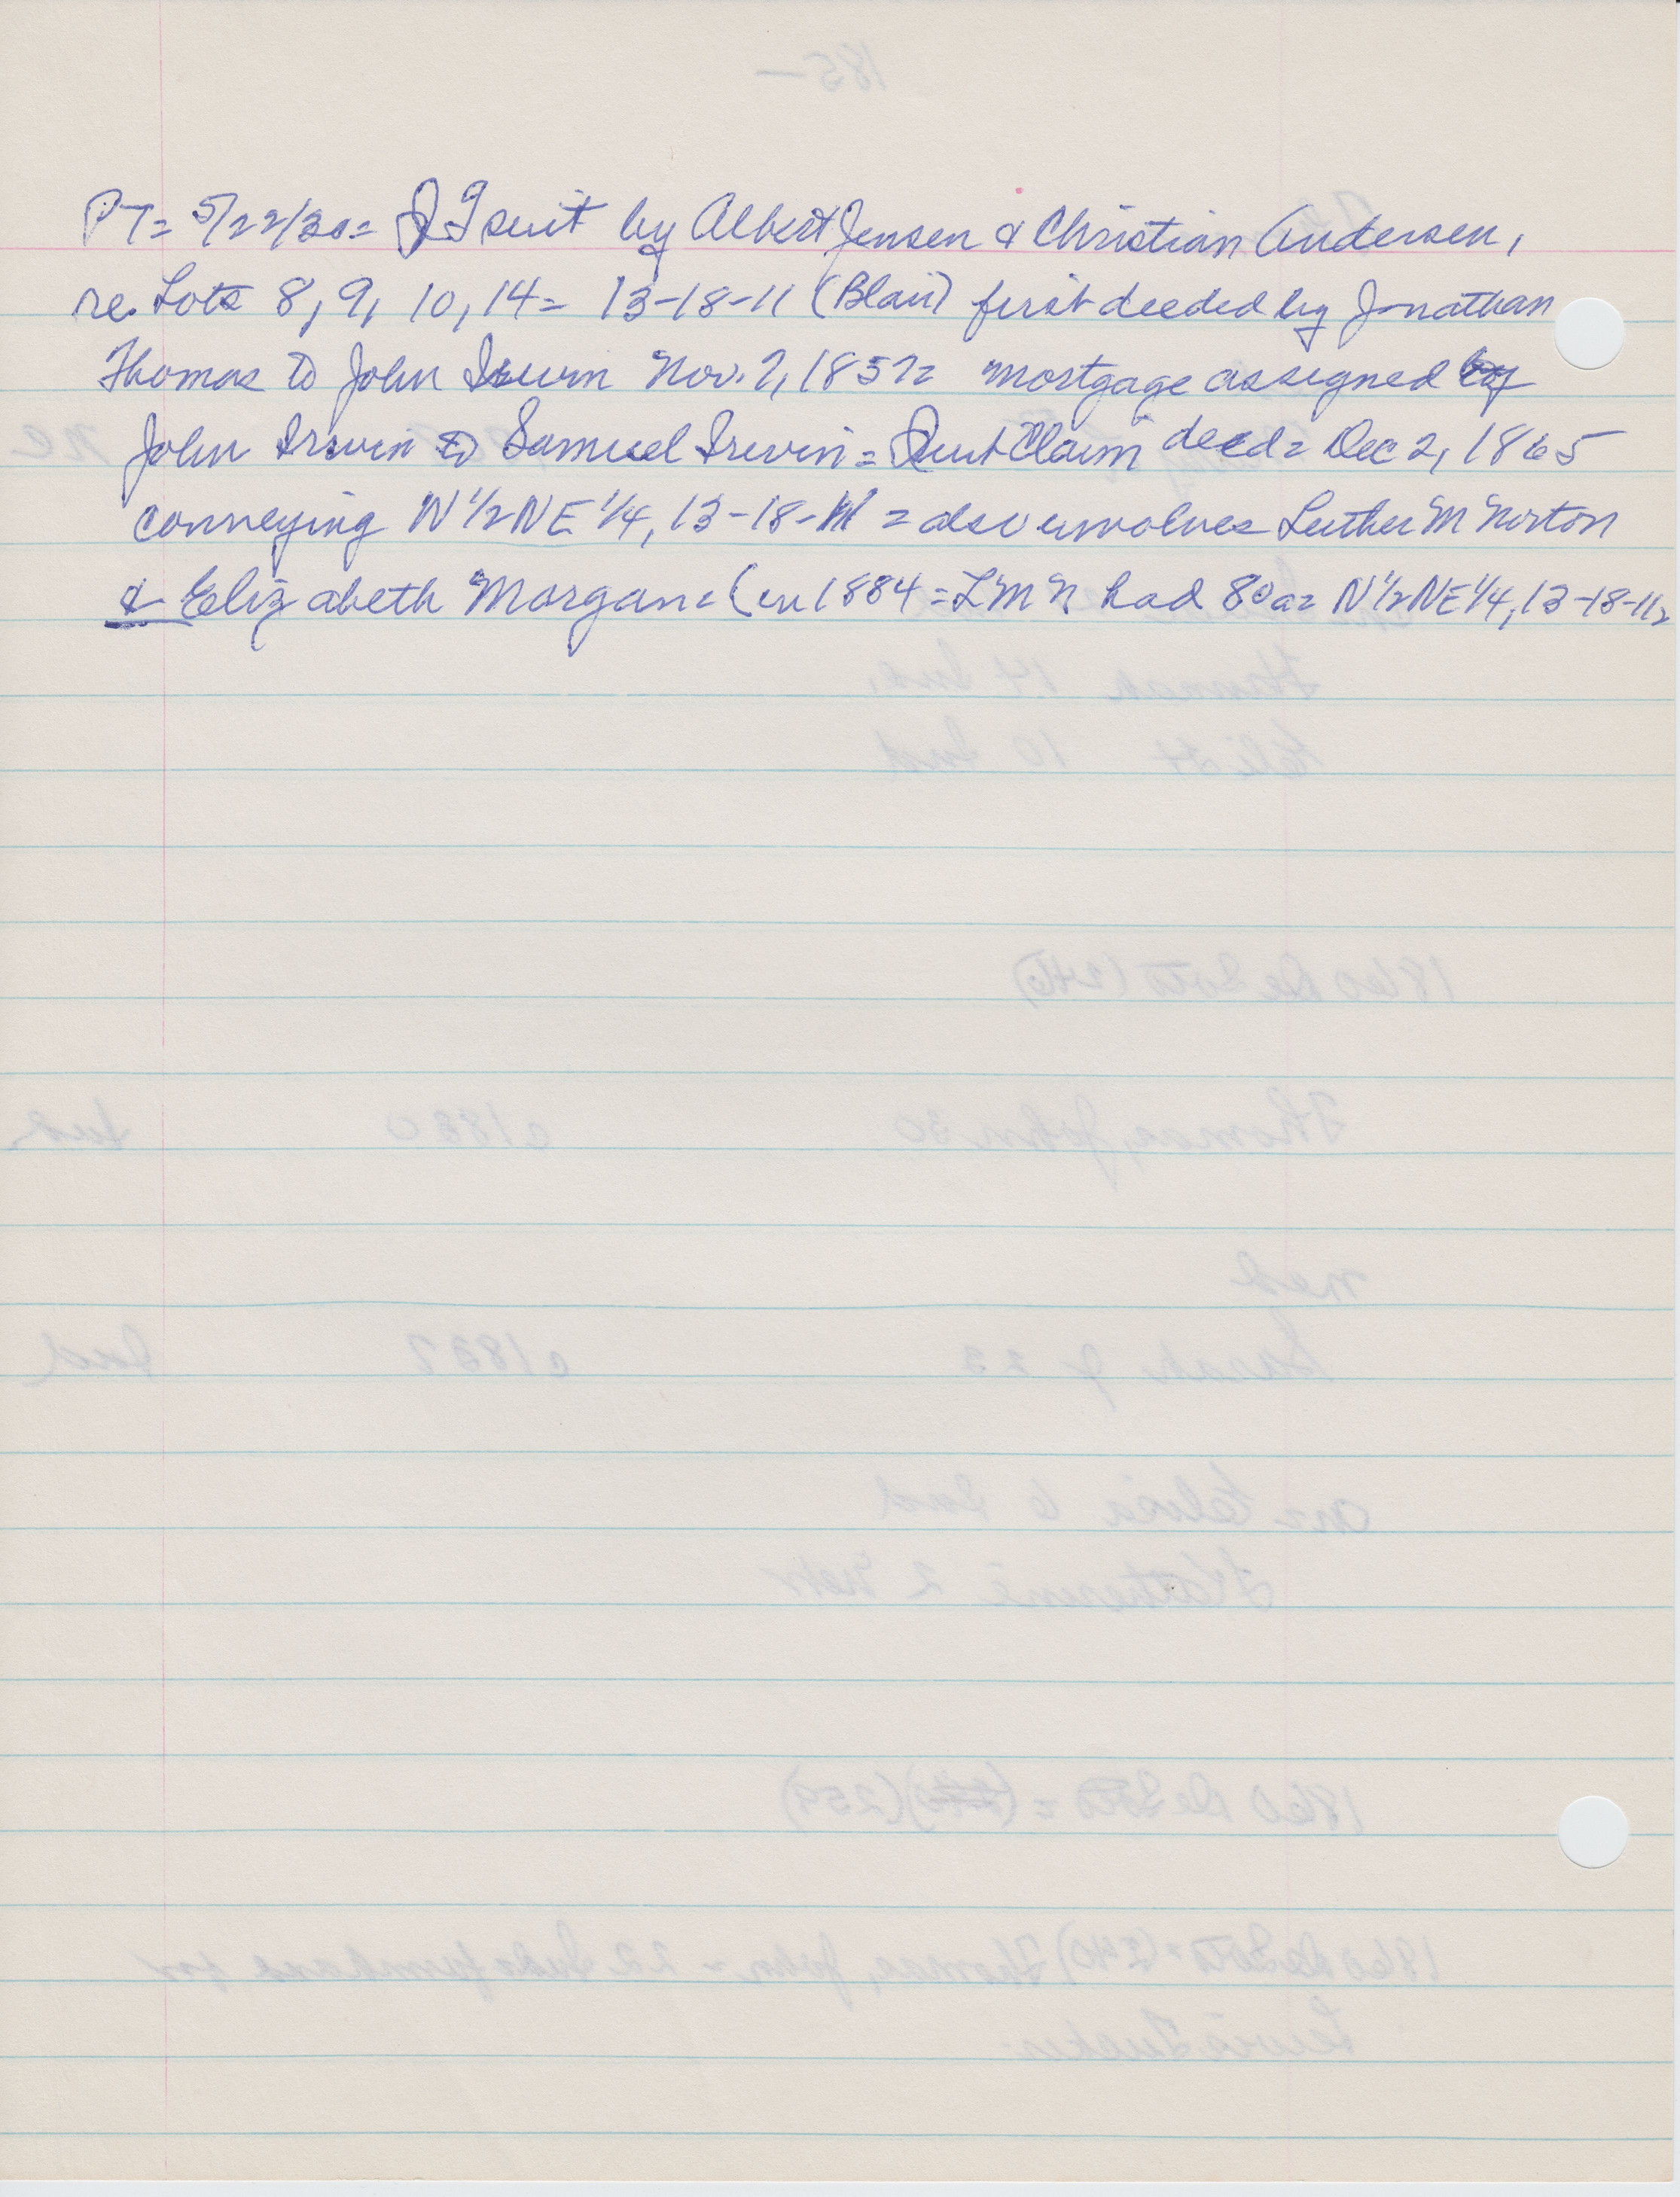 PT= 5/22/30= Q T suit by Albert Jensen & Christian Andersen,
re. Lots 8, 9, 10, 14= 13-18-11 (Blair) first deeded by Jonathan
Thomas to John Irwin Nov. 7, 1857= mortgage assigned by
John Irwin to Samuel Irwin = Quit Claim deed= Dec 2, 1865
conveying N 1/2 NE 1/4, 13-18-11 = also involves Luther M Norton
& Elizabeth Morgan= (in 1884 = LMN had 80a= N 1/2 NE 1/4, 13-18-11=